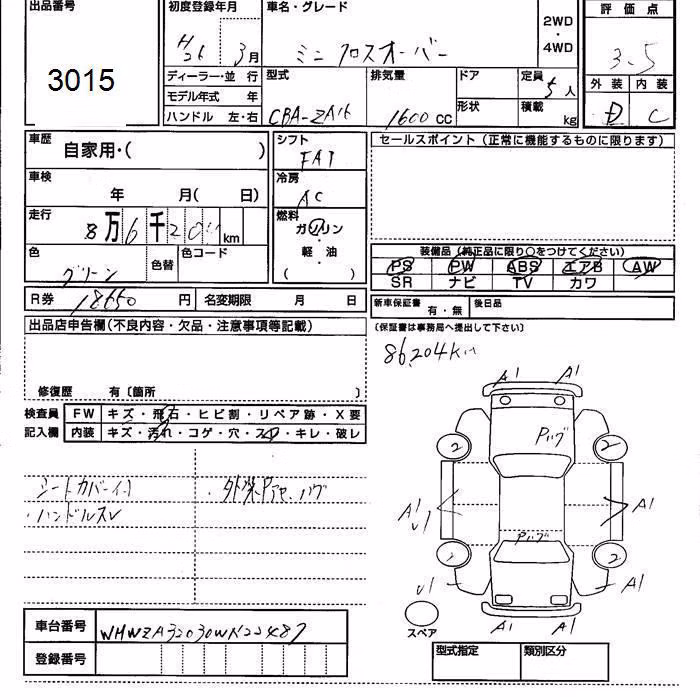 出品番号
3015
初度登録年月
H26 3月
車名・グレード
ミニ クロスオーバー
2WD
・
4WD
評価点
3.5
外装 内装
D C
ディーラー・並 行
モデル年式 年
ハンドル 左・右
型式
CBA-ZA16
排気量
1600 CC
ドア
形状
定員
5人
積載
kg
車歴
自家用・( )
車検
年 月( 日)
走行
8万6千20 km
色
グリーン
色替
色コード
R券 18650 円
名変期限 月 日
シフト
FAT
冷房
AC
燃料
ガソリン
・
軽・油
( )
セールスポイント(正常に機能するものに限ります)
装備品(純正品に限り○をつけてください)
PS PW ABS エアB AW
SR ナビ TV カワ
新車保証書 有・無
後日品
(保証書は事務局へ提出して下さい)
86,204km
出品店申告欄(不良内容・欠品・注意事項等記載)
修復歴 有〔箇所 〕
検査員
記入欄
FW キズ・飛石・ヒビ割・リペア跡・X要
内装 キズ・汚れ・コゲ・穴・スレ・キレ・破レ
シートカバーイ
・ハンドルスレ
A1 A1
Pハゲ
2 2
A1
U1
A1
Pハゲ
2 2
U1
A1
A1 A1
スペア
車台番号
WMWZA32030WN22487
登録番号
型式指定
類別区分